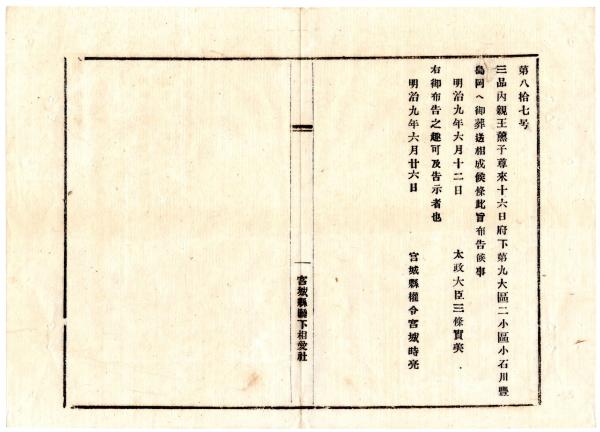 第八拾七号
三品內親王薰子尊來十六日府下第九大區二小區小石川豐
島岡ヘ御葬送相成候條此旨布告候事
明治九年六月十二日
太政大臣三條實美
右御布告之趣可及告示者也
明治九年六月廿六日
宮城縣權令宮城時亮
宮城縣廳下相愛社